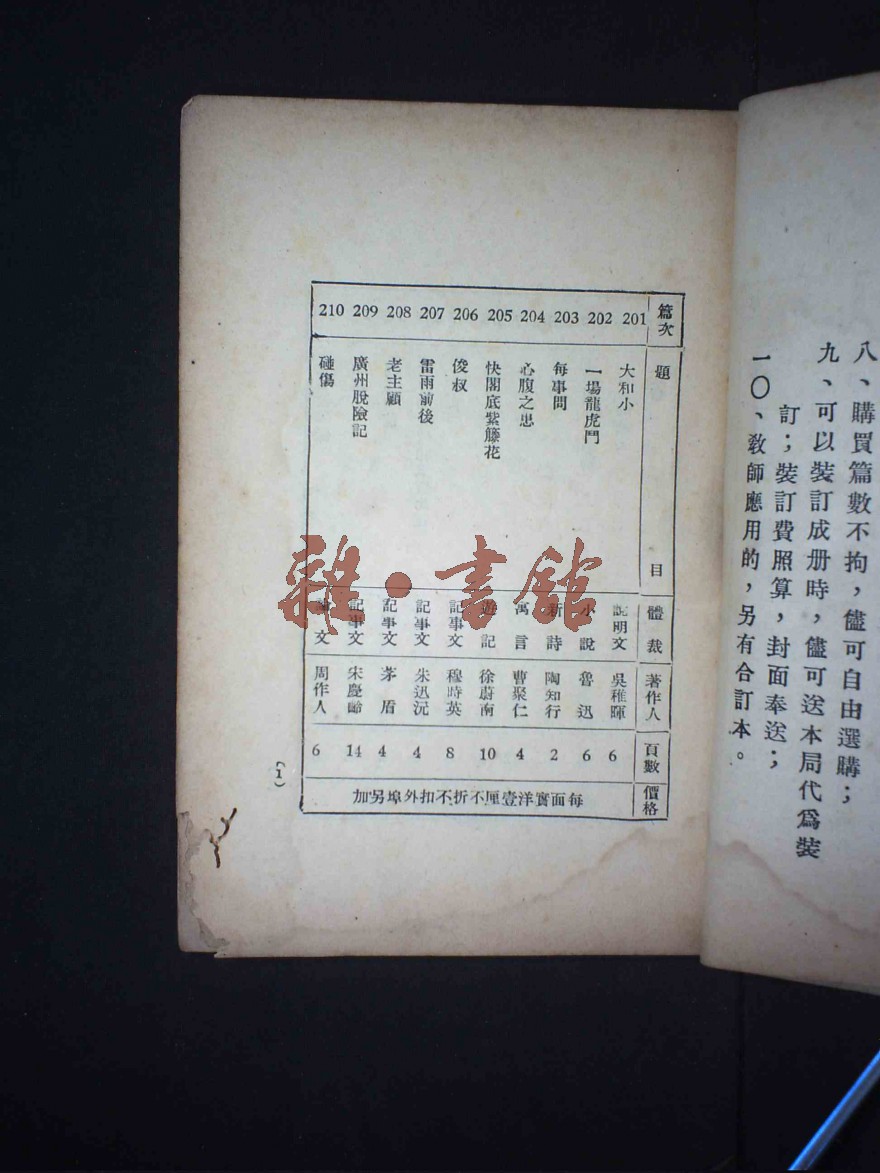 八、購買篇數不拘，儘可自由選購；
九、可以裝訂成册時，儘可送本局代爲裝
訂；裝訂費照算，封面奉送；
一〇、教師應用的，另有合訂本。
篇次 題目 體裁 著作人 頁數 價格
201 大和小 說明文 吳稚暉 6
202 一場龍虎鬥 小說 魯迅 6
203 每事問 新詩 陶知行 2
204 心腹之患 寓言 曹聚仁 4
205 快閣底紫籐花 遊記 徐蔚南 10
206 俊叔 記事文 穆時英 8
207 雷雨前後 記事文 朱迅沅 4
208 老主顧 記事文 茅盾 4
209 廣州脫險記 記事文 宋慶齡 14
210 碰傷 論文 周作人 6
每面實洋壹厘不折不扣外埠另加
(1)
雜·書館